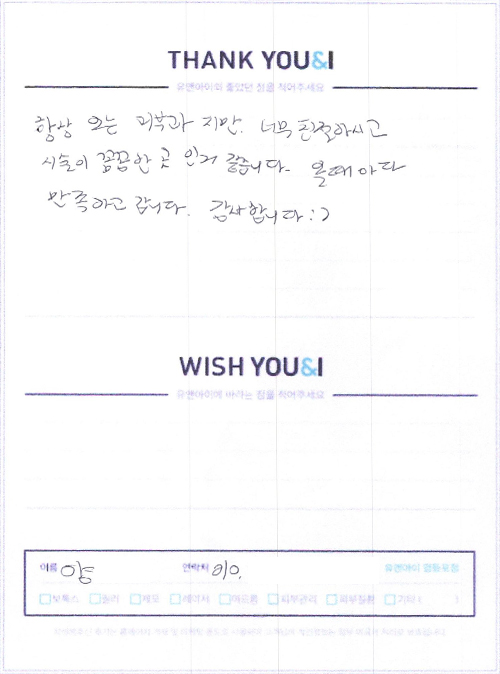 THANK YOU&I
유앤아이의 좋았던 점을 적어주세요
항상 오는 피부과 지만. 너무 친절하시고
시술이 꼼꼼한 곳 인거 같습니다. 올때 마다
만족하고 갑니다. 감사합니다 : )
WISH YOU&I
유앤아이에 바라는 점을 적어주세요
이름 연락처 010. 유앤아이 감동포청
보톡스 필러 제모 레이저 여드름 피부관리 피부질환 기타 ( )